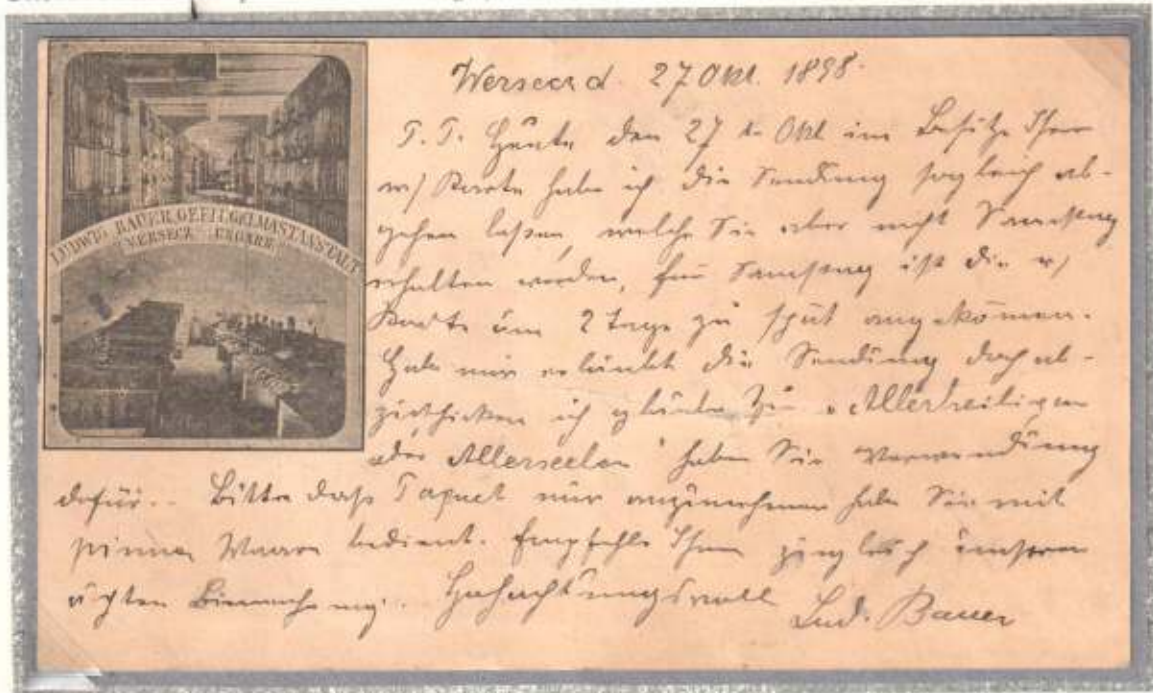 LUDWIG BAUER, GEFLÜGELMASTANSTALT
VERSECZ (UNGARN)
Wersecz d. 27 Okt. 1898.
P. T. Heute den 27 t. Okt im Besitze Ihrer
w/ Karte habe ich die Sendung sogleich ab-
gehen laßen, welche Sie aber nicht Samstag
erhalten werden, für Samstag ist die w/
Karte um 2 Tage zu spät angekomen.
Habe mir erlaubt die Sendung doch ab-
zuschicken ich glaube zu "Allerheiligen
oder Allerseelen" haben Sie Verwendung
dafür. Bitte daß Paquet nur anzunehmen habe Sie mit
feiner Waare bedient. Empfehle Ihnen zugleich unseren
Hochachtungsvoll
Lud. Bauer